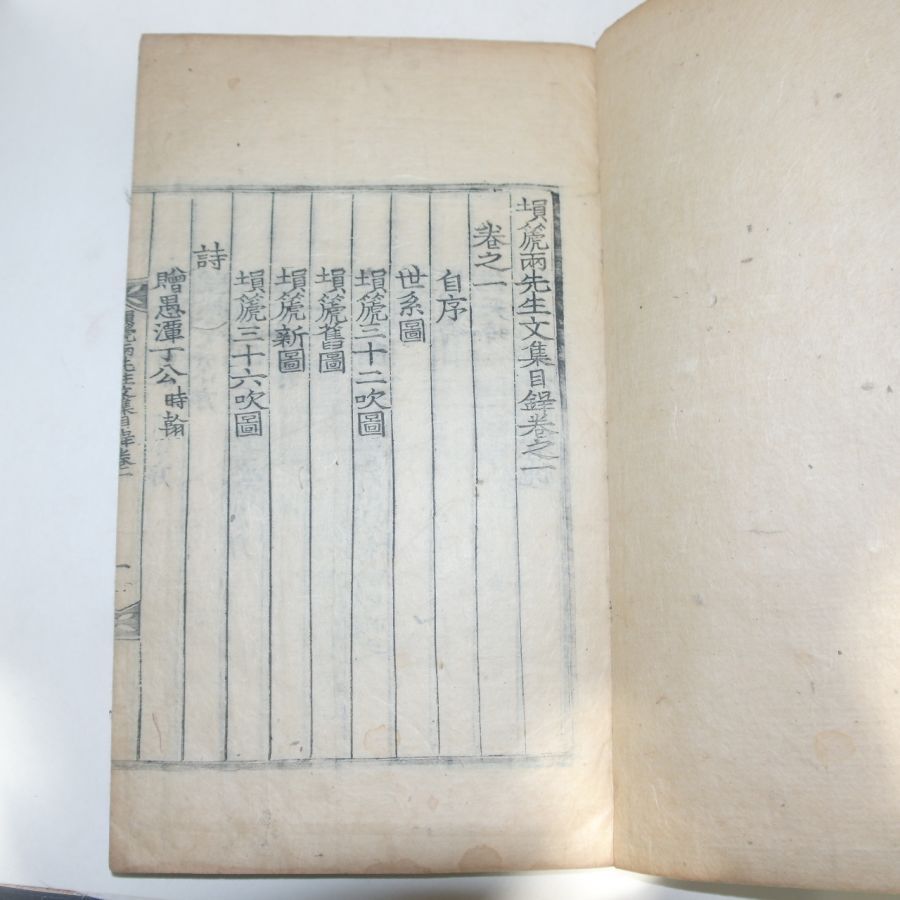 塤篪兩先生文集目錄卷之一
卷之一
自序
世系圖
塤篪三十二吹圖
塤篪舊圖
塤篪新圖
塤篪三十六吹圖
詩
贈愚潭丁公時翰
塤篪兩先生文集目錄卷之一
一